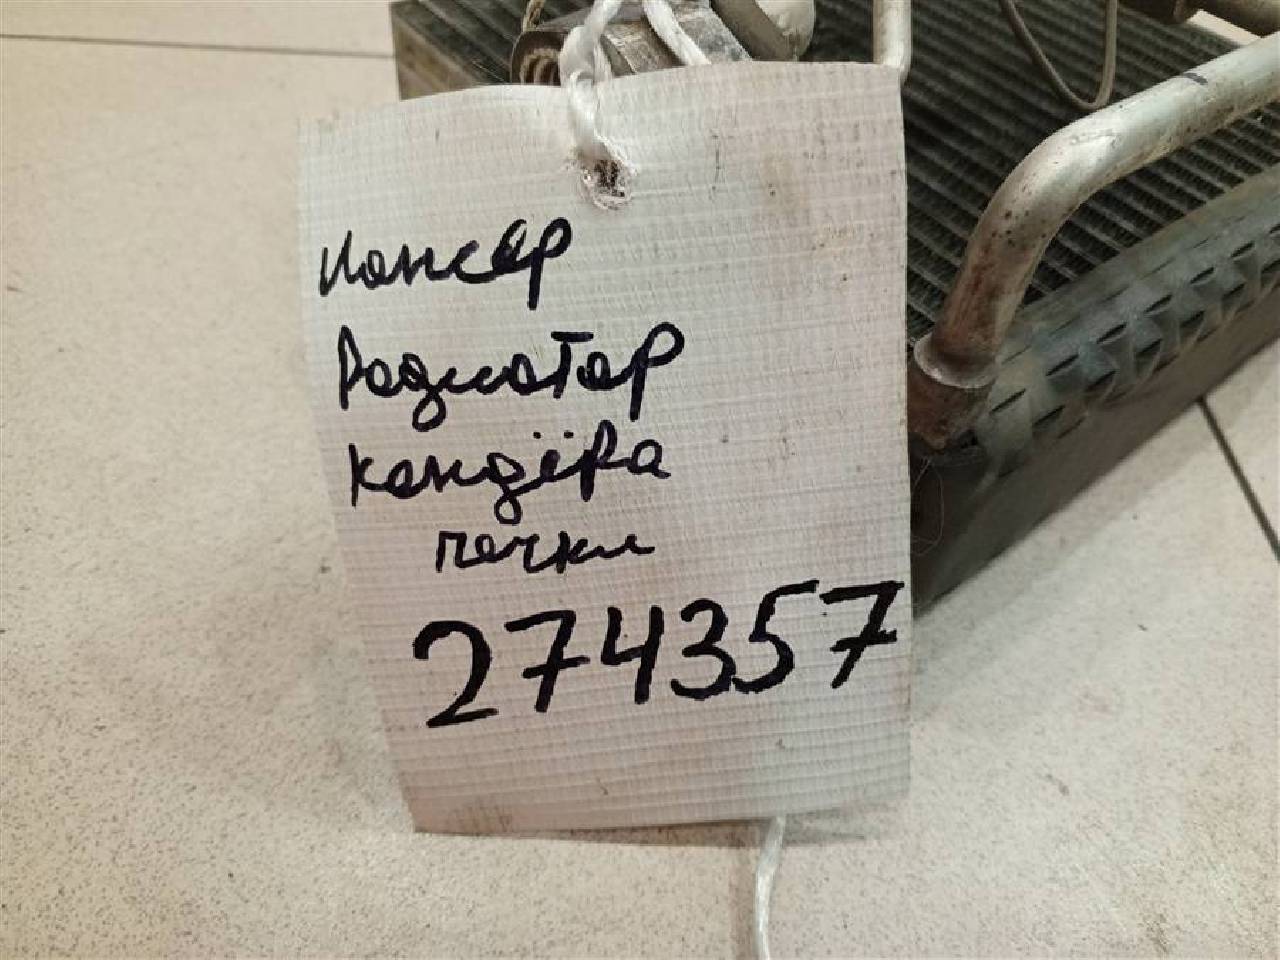 Лансер
Радиатор
кондёра
печки
274357